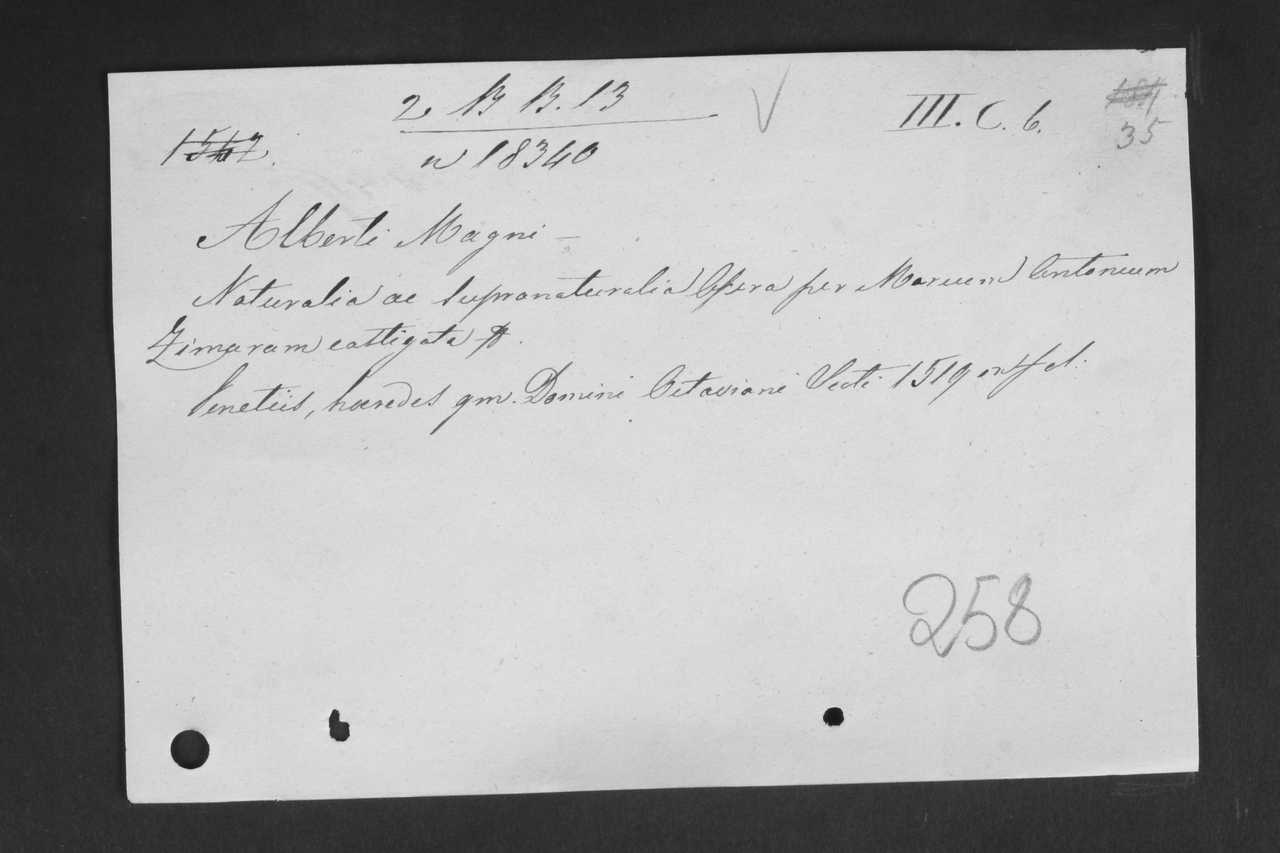 2 B B. 13
III. C. 6.
35
n 18340
Alberti Magni –
Naturalia ac supranaturalia Opera per Marcum Antonium
Zimaram castigata
Venetiis, haeredes qm. Domini Octaviani Scoti 1519 in f
258